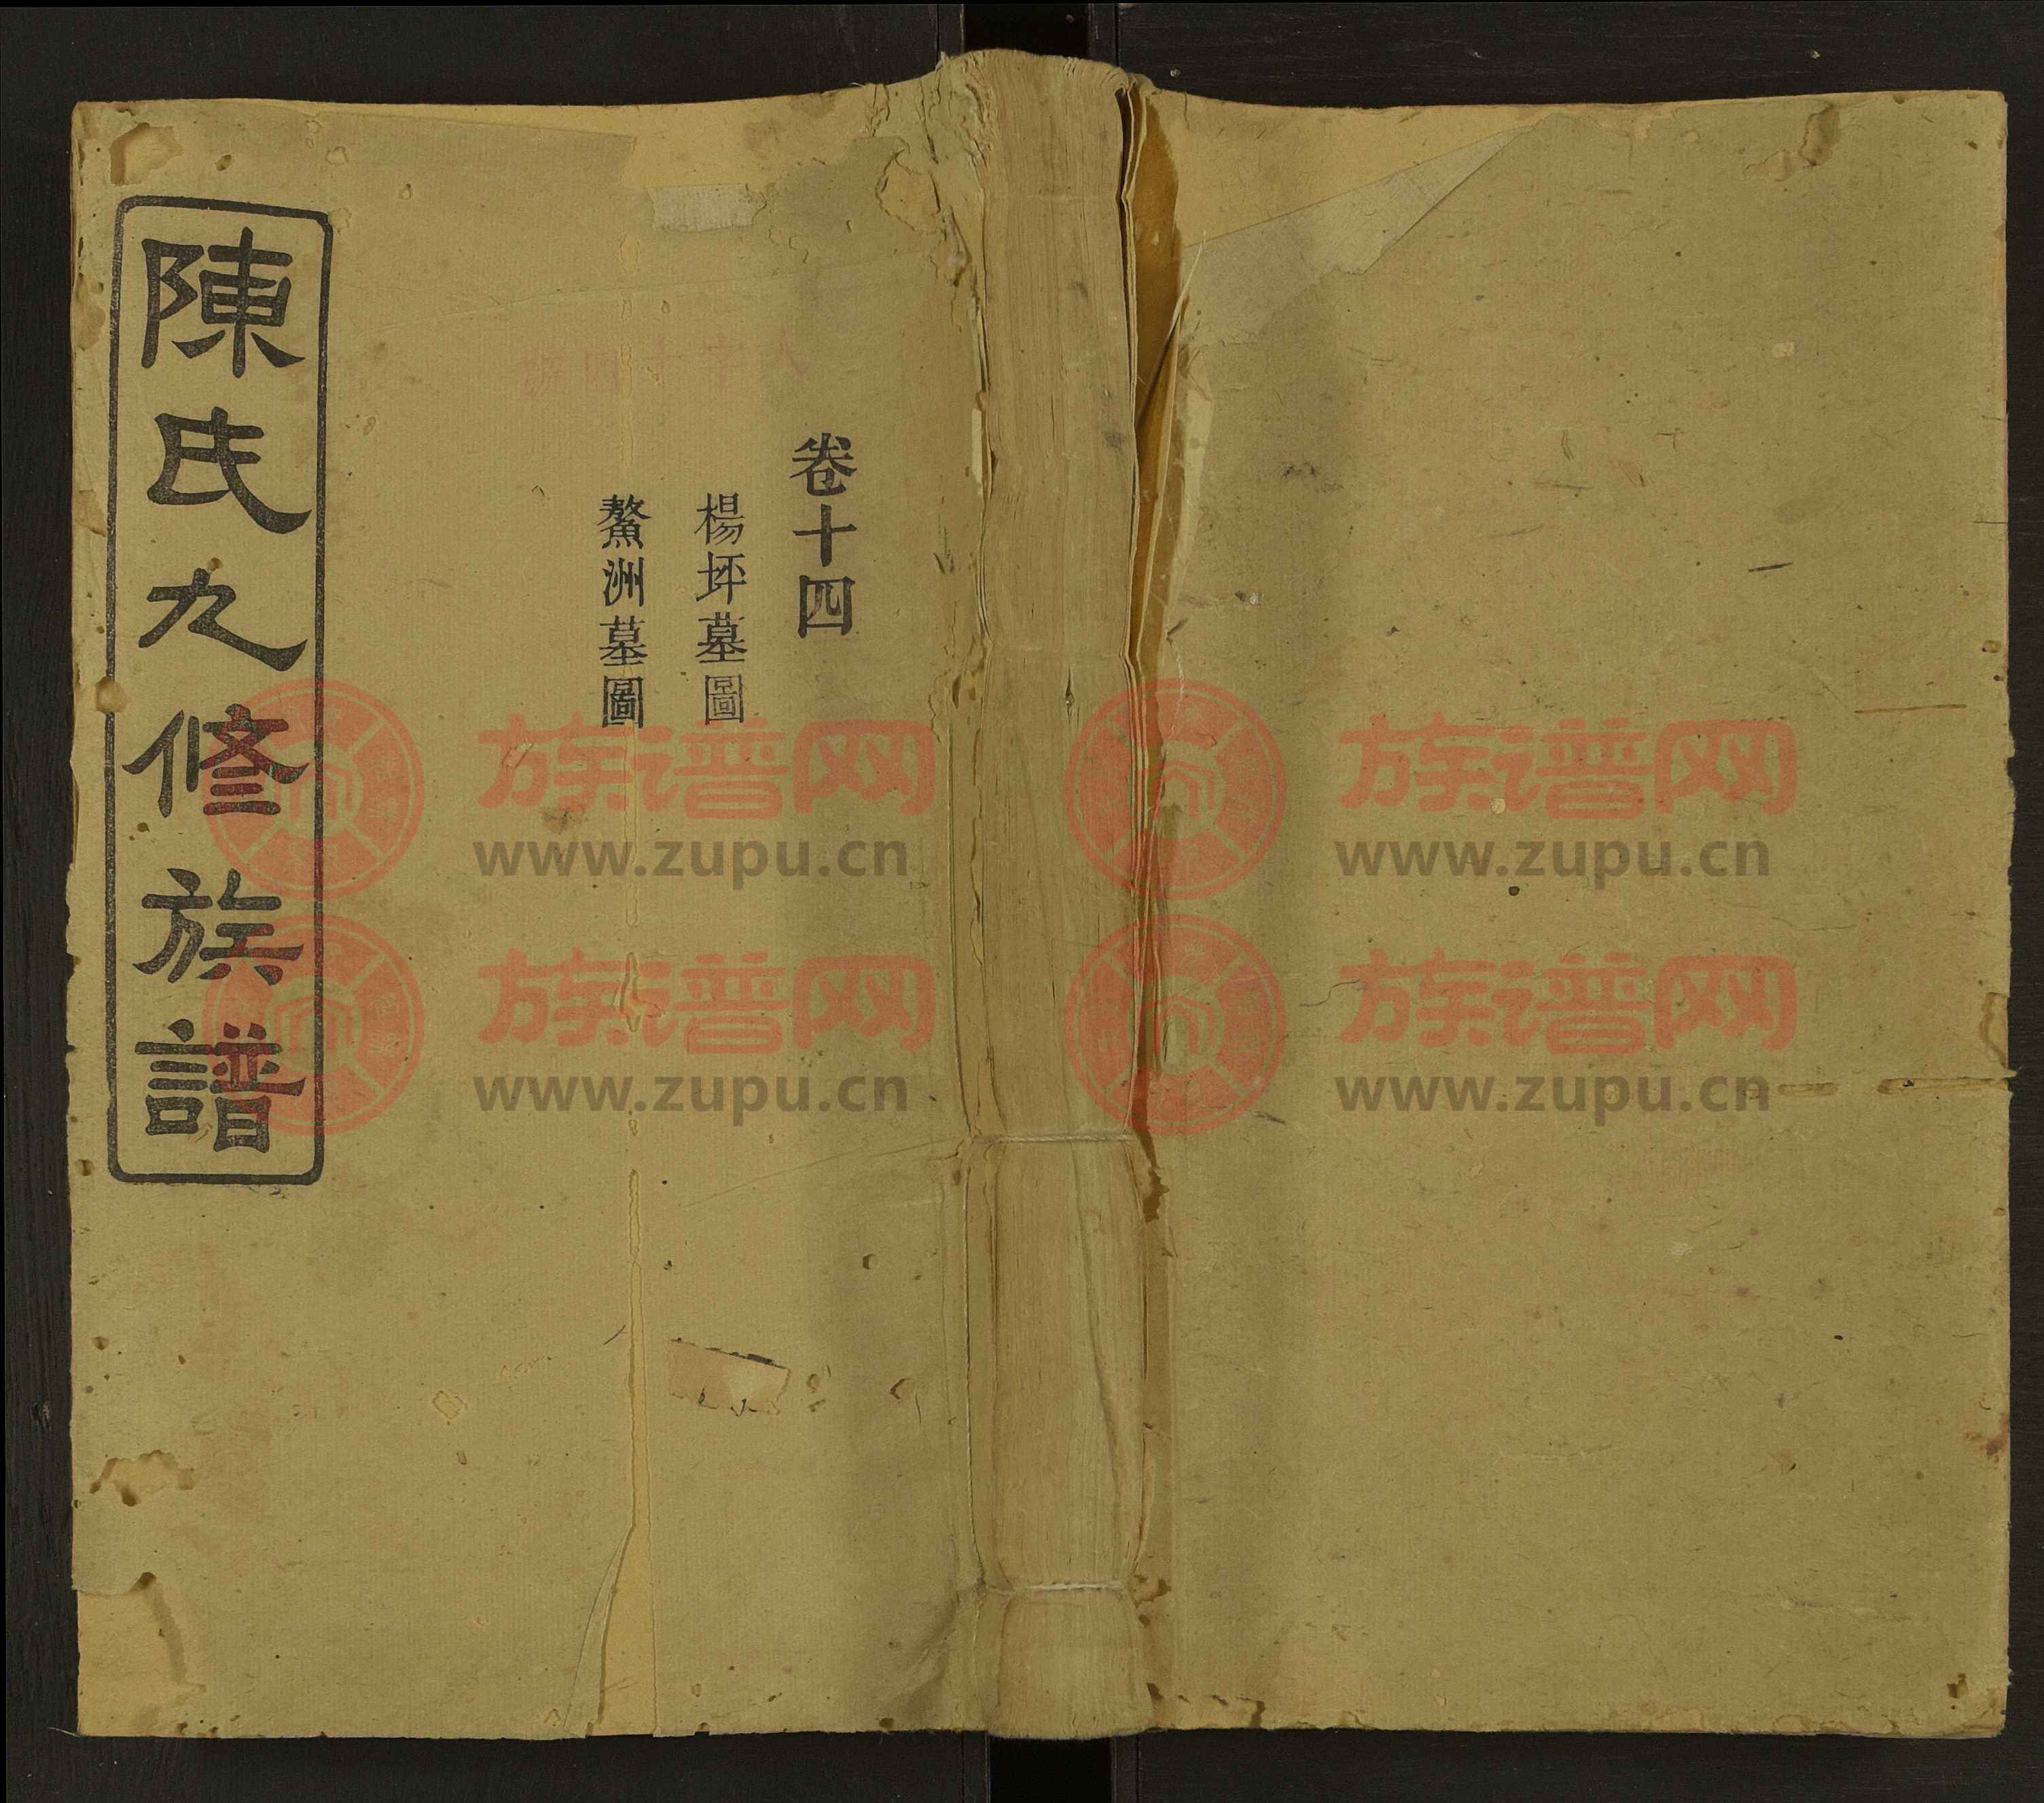 陳氏九修族譜
卷十四
楊坪墓圖
鰲洲墓圖
族谱网
www.zupu.cn
族谱网
www.zupu.cn
族谱网
www.zupu.cn
族谱网
www.zupu.cn